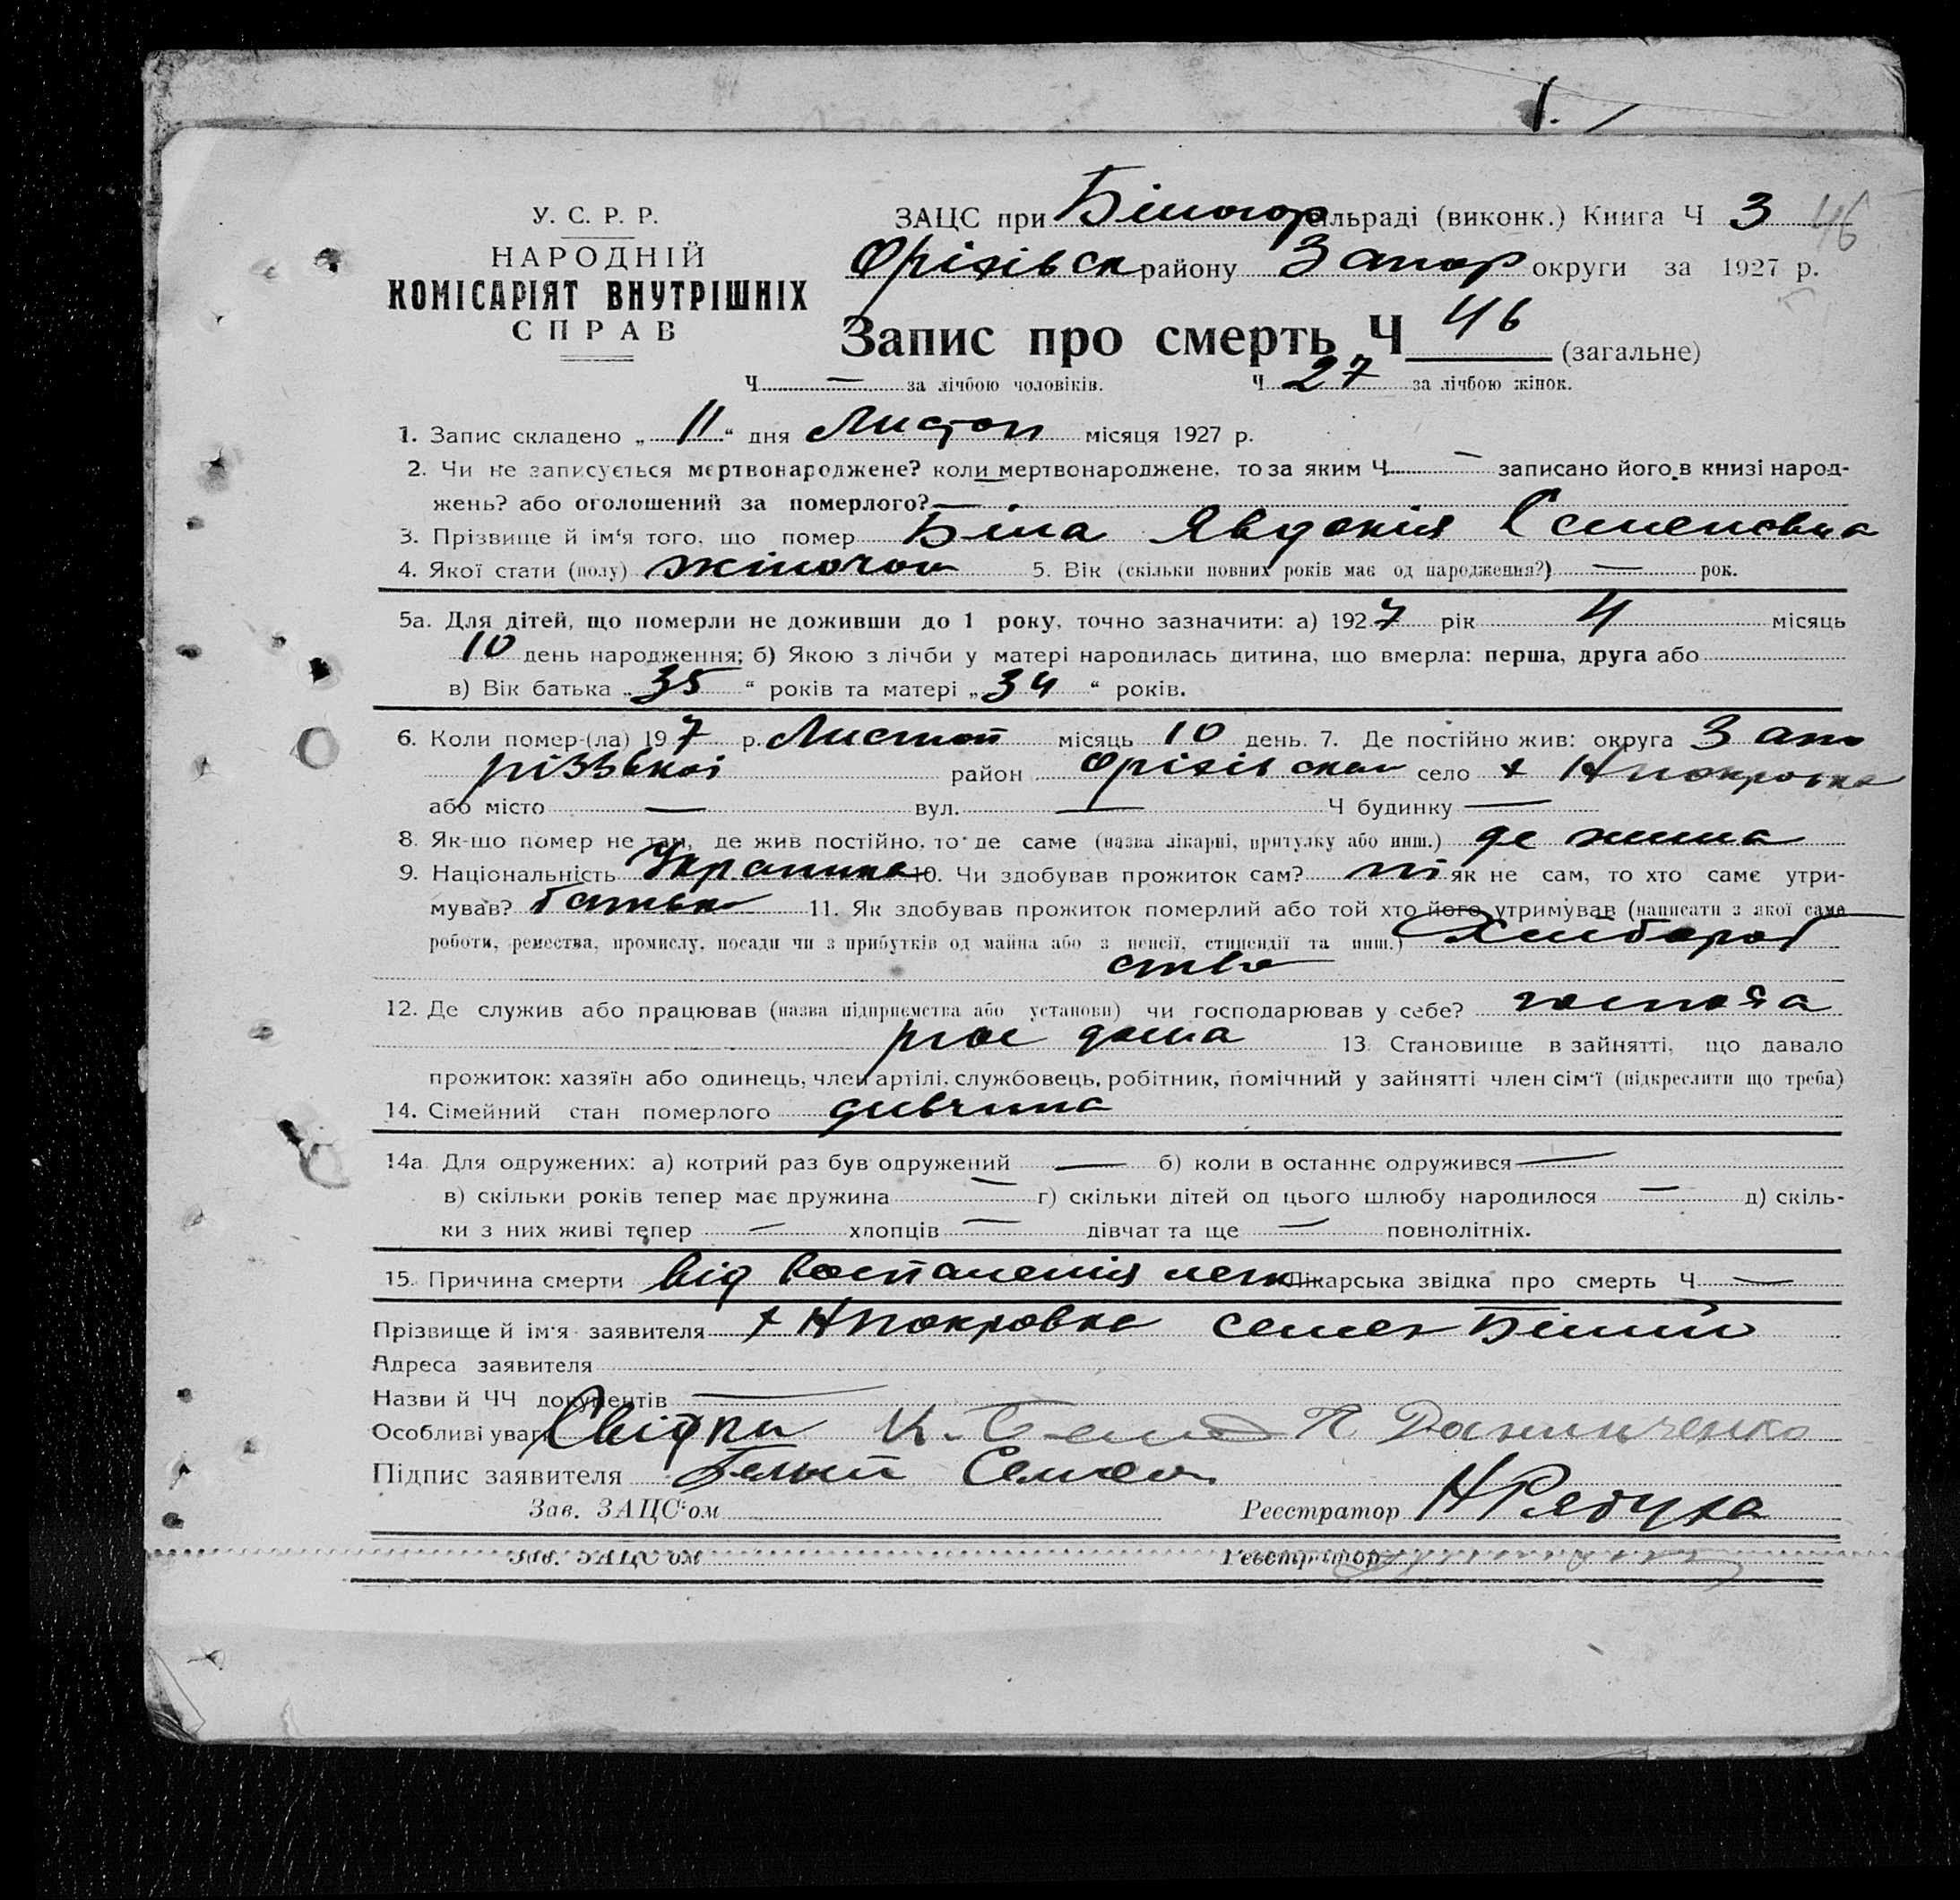 1.
У. С. Р. Р.
НАРОДНІЙ
КОМІСАРІЯТ ВНУТРІШНІХ
СПРАВ
ЗАЦС при Білогор сільраді (виконк.) Книга Ч 3 46
Оріхівськ району Запор округи за 1927 р.
Запис про смерть Ч 46 (загальне)
Ч — за лічбою чоловіків. Ч 27 за лічбою жінок.
1. Запис складено „ 11 “ дня Листоп місяця 1927 р.
2. Чи не записується мертвонароджене? коли мертвонароджене, то за яким Ч — записано його в книзі народ-
жень? або оголошений за померлого? —
3. Прізвище й ім'я того, що помер Біла Явдокія Семеновна
4. Якої стати (полу) жіночои 5. Вік (скільки повних років має од народження?) — рок.
5а. Для дітей, що померли не доживши до 1 року, точно зазначити: а) 1927 рік 4 місяць
10 день народження; б) Якою з лічби у матері народилась дитина, що вмерла: перша, друга або
в) Вік батька „ 35 “ років та матері „ 34 “ років.
6. Коли помер-(ла) 197 р. Листоп місяць 10 день. 7. Де постійно жив: округа Запо
різзької район Оріхівскои село х Нпокровка
або місто — вул. — Ч будинку —
8. Як-що помер не там, де жив постійно, то де саме (назва лікарні, притулку або инш.) де жила
9. Національність Украинка 10. Чи здобував прожиток сам? ні як не сам, то хто саме утри-
мував? батько 11. Як здобував прожиток померлий або той хто його утримував (написати з якої саме
роботи, ремества, промислу, посади чи з прибутків од майна або з пенсії, стипендії та инш.) Хлибороб
ство
12. Де служив або працював (назва підприємства або установи) чи господарював у себе? господа
рює дома 13. Становище в зайнятті, що давало
прожиток: хазяїн або одинець, член артілі, службовець, робітник, помічний у зайнятті член сім'ї (підкреслити що треба)
14. Сімейний стан померлого дивчина
14а. Для одружених: а) котрий раз був одружений — б) коли в останнє одружився —
в) скільки років тепер має дружина — г) скільки дітей од цього шлюбу народилося — д) скіль-
ки з них живі тепер — хлопців — дівчат та ще — повнолітніх.
15. Причина смерти від воспаленія легк Лікарська звідка про смерть Ч —
Прізвище й ім'я заявителя х Нпокровка семен Білий
Адреса заявителя
Назви й ЧЧ документів —
Особливі уваги Свідки К. Белий П Данильченко
Підпис заявителя Белый Семен
Зав. ЗАЦС'ом Реєстратор Н Рябуха
Зав. ЗАЦС'ом Реєстратор